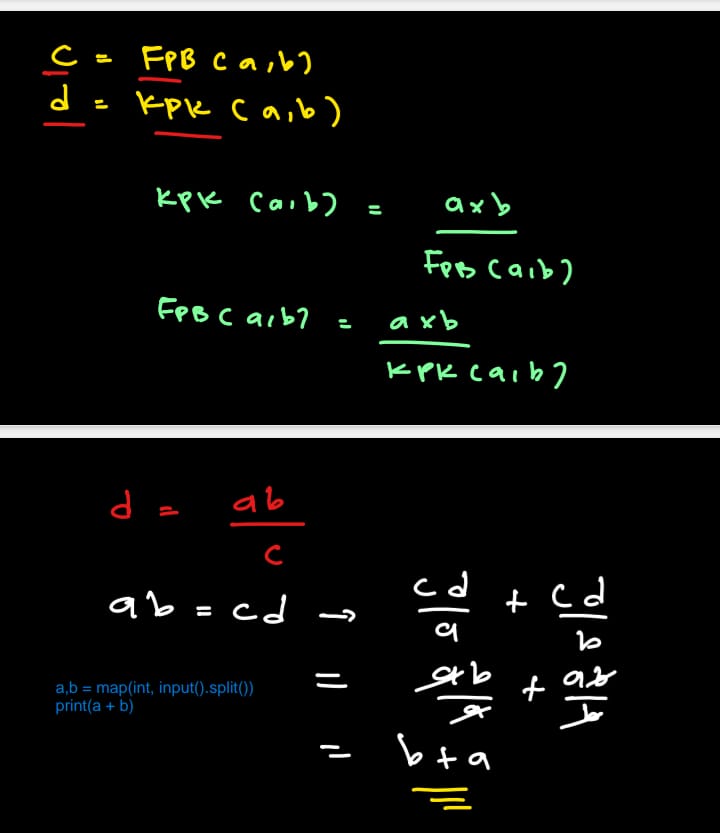 c = FPB (a,b)
d = KPK (a,b)
KPK (a,b) = a x b
FPB (a,b)
FPB (a,b) = a x b
KPK (a,b)
d = ab
c
ab = cd → cd/a + cd/b
= ab/a + ab/b
a,b = map(int, input().split())
print(a + b)
= b + a